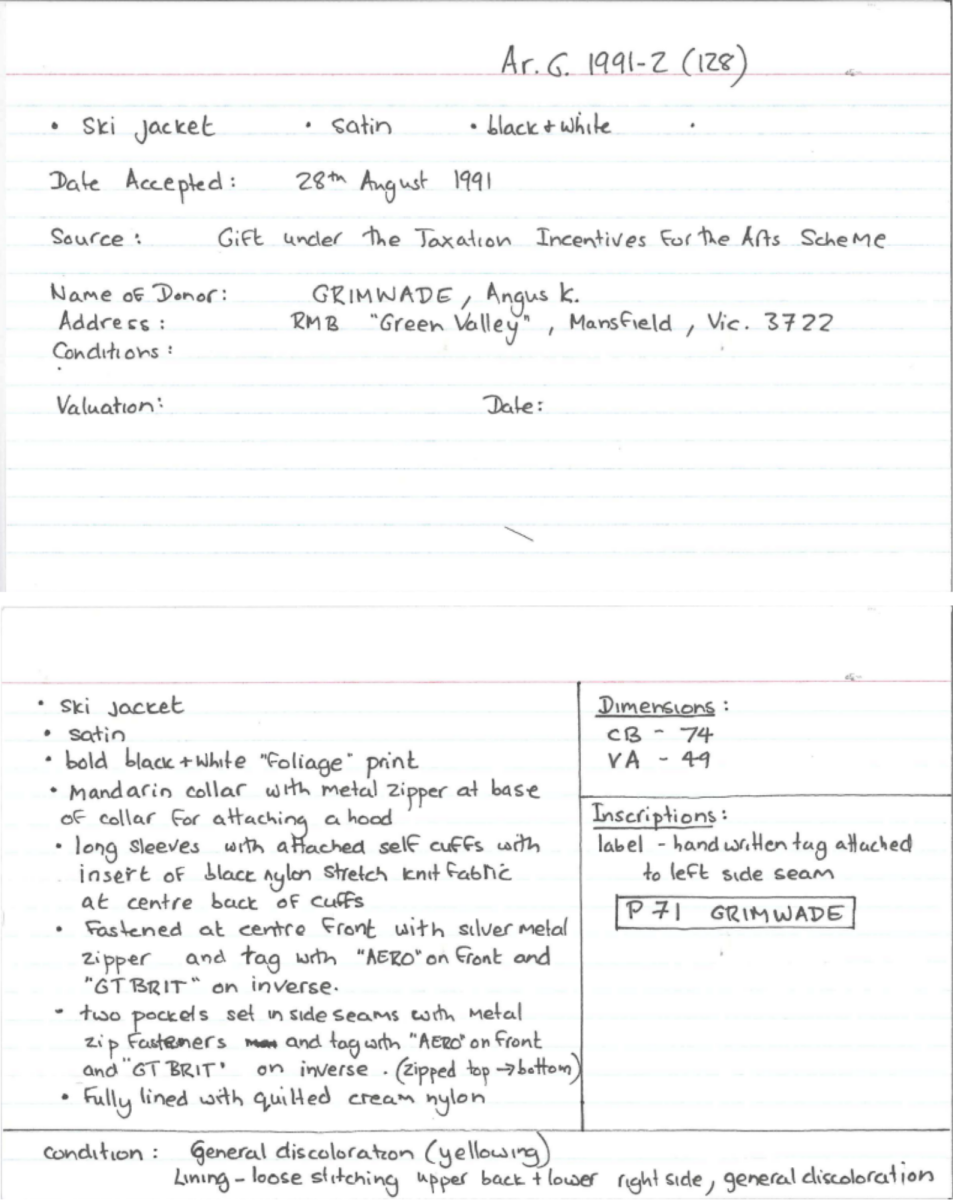 Ar. G. 1991-2 (128)
• Ski jacket • satin • black + white •
Date Accepted: 28th August 1991
Source: Gift under the Taxation Incentives For the Arts Scheme
Name of Donor: GRIMWADE, Angus K.
Address: RMB "Green Valley", Mansfield, Vic. 3722
Conditions:
Valuation: Date:
• Ski jacket
• satin
• bold black + white "Foliage" print
• Mandarin collar with metal zipper at base
of collar for attaching a hood
• long sleeves with attached self cuffs with
insert of black nylon stretch knit fabric
at centre back of cuffs
• Fastened at centre front with silver metal
zipper and tag with "AERO" on front and
"GT BRIT" on inverse.
• two pockets set in side seams with metal
zip fasteners and tag with "AERO" on front
and "GT BRIT" on inverse. (zipped top → bottom)
• Fully lined with quilted cream nylon
Dimensions:
CB - 74
VA - 49
Inscriptions:
label - handwritten tag attached
to left side seam
P 71 GRIMWADE
condition: General discoloration (yellowing)
Lining - loose stitching upper back + lower right side, general discoloration